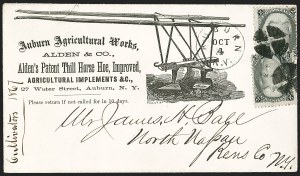 Auburn Agricultural Works,
ALDEN & CO.,
Alden's Patent Thill Horse Hoe, Improved,
AGRICULTURAL IMPLEMENTS &C.,
27 Water Street, Auburn, N. Y.
Please return if not called for in 10 days.
AUBURN
OCT
4
N.Y.
Cultivator 1867
Mr James H. Page
North
Rens Co N.Y.